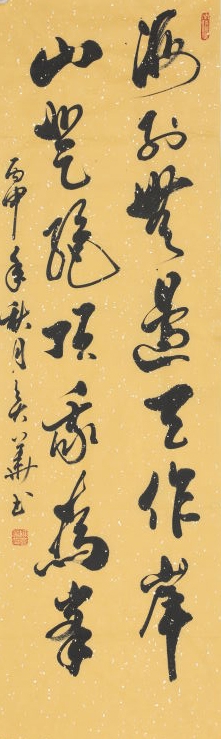 海到無邊天作岸
山登絕頂我為峯
丙申年秋月吳華书